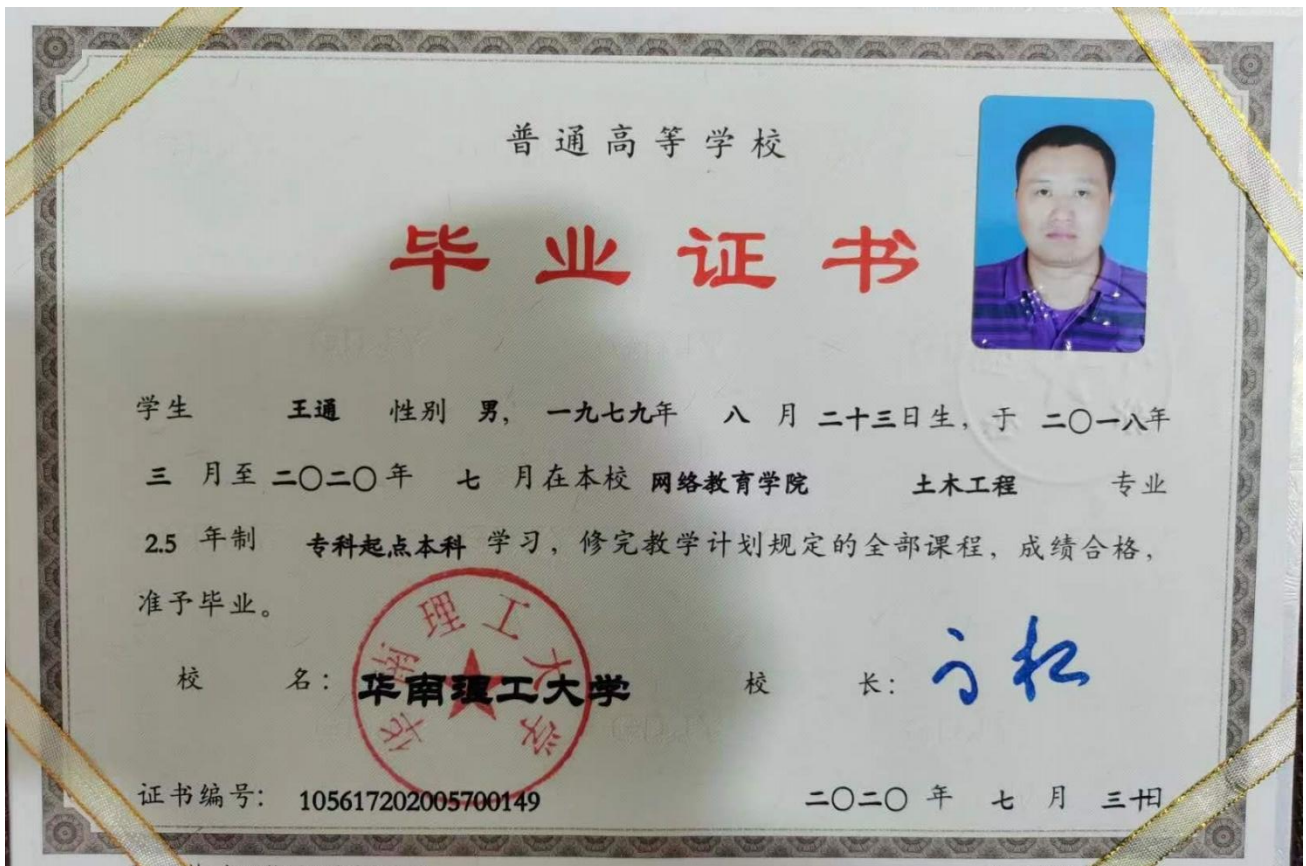 普通高等学校
毕业证书
学生 王通 性别 男, 一九七九年 八 月 二十三日生, 于 二〇一八年
三 月至 二〇二〇年 七 月在本校 网络教育学院 土木工程 专业
2.5 年制 专科起点本科 学习, 修完教学计划规定的全部课程, 成绩合格,
准予毕业。
华南理工大学
校 名: 华南理工大学 校 长:
证书编号: 105617202005700149 二〇二〇 年 七 月